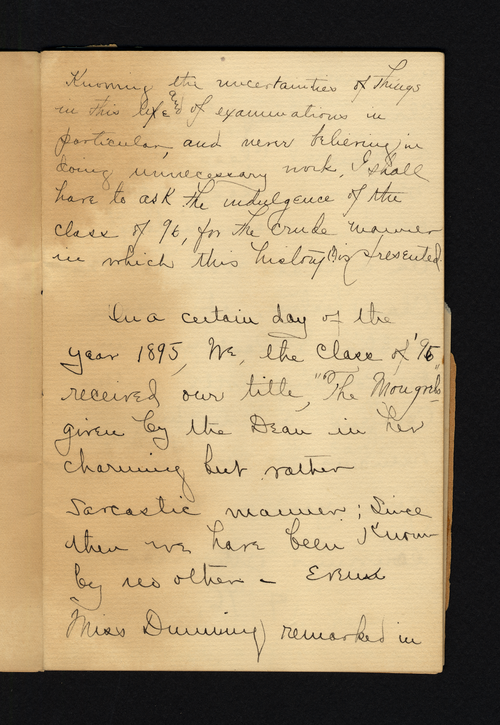 Knowing the uncertainties of things
in this life and of examinations in
particular, and never believing in
doing unnecessary work, I shall
have to ask the indulgence of the
class of 96, for the crude manner
in which this history is presented.
On a certain day of the
year 1895, We, the class of '96
received our title, "The Mongrels"
given by the Dean in her
charming but rather
sarcastic manner; Since
then we have been known
by no other - Even
Miss Dunning remarked in